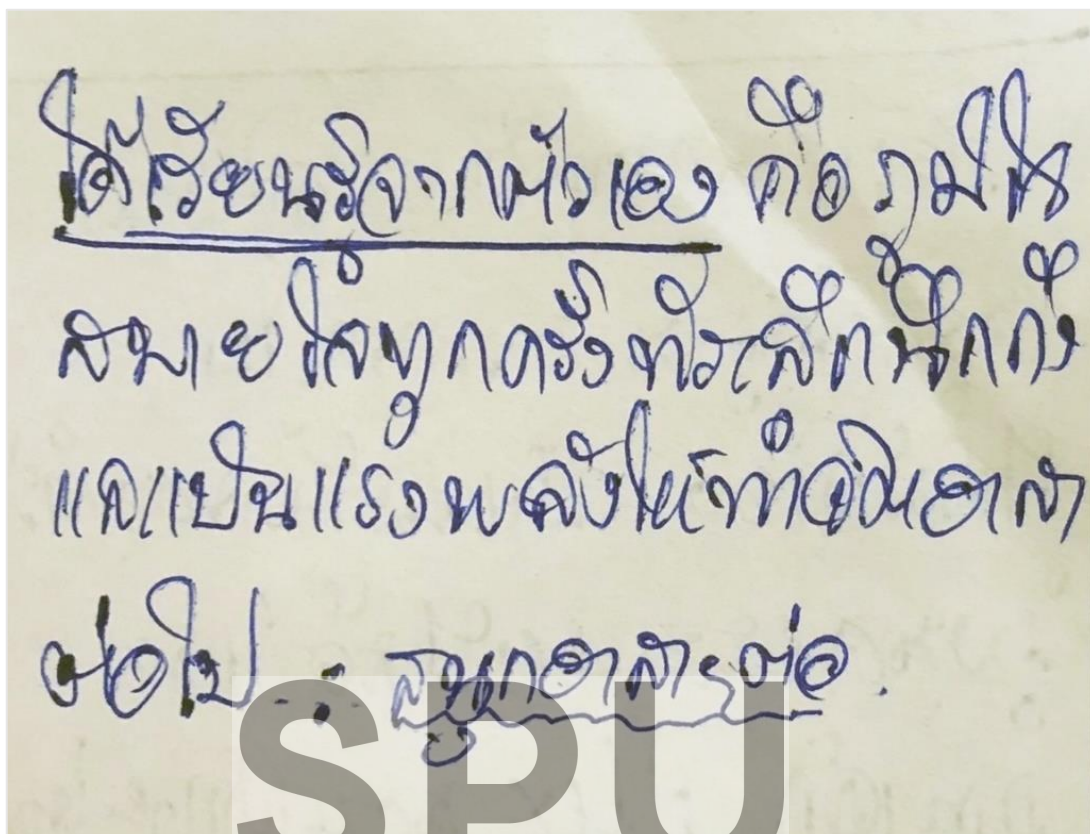 ได้เรียนรู้จากตัวเอง คือ ภูมิใจ
สบายใจทุกครั้งที่ระลึกนึกถึง
และเป็นแรงพลังให้ทำจิตอาสา
ต่อไป...
SPU